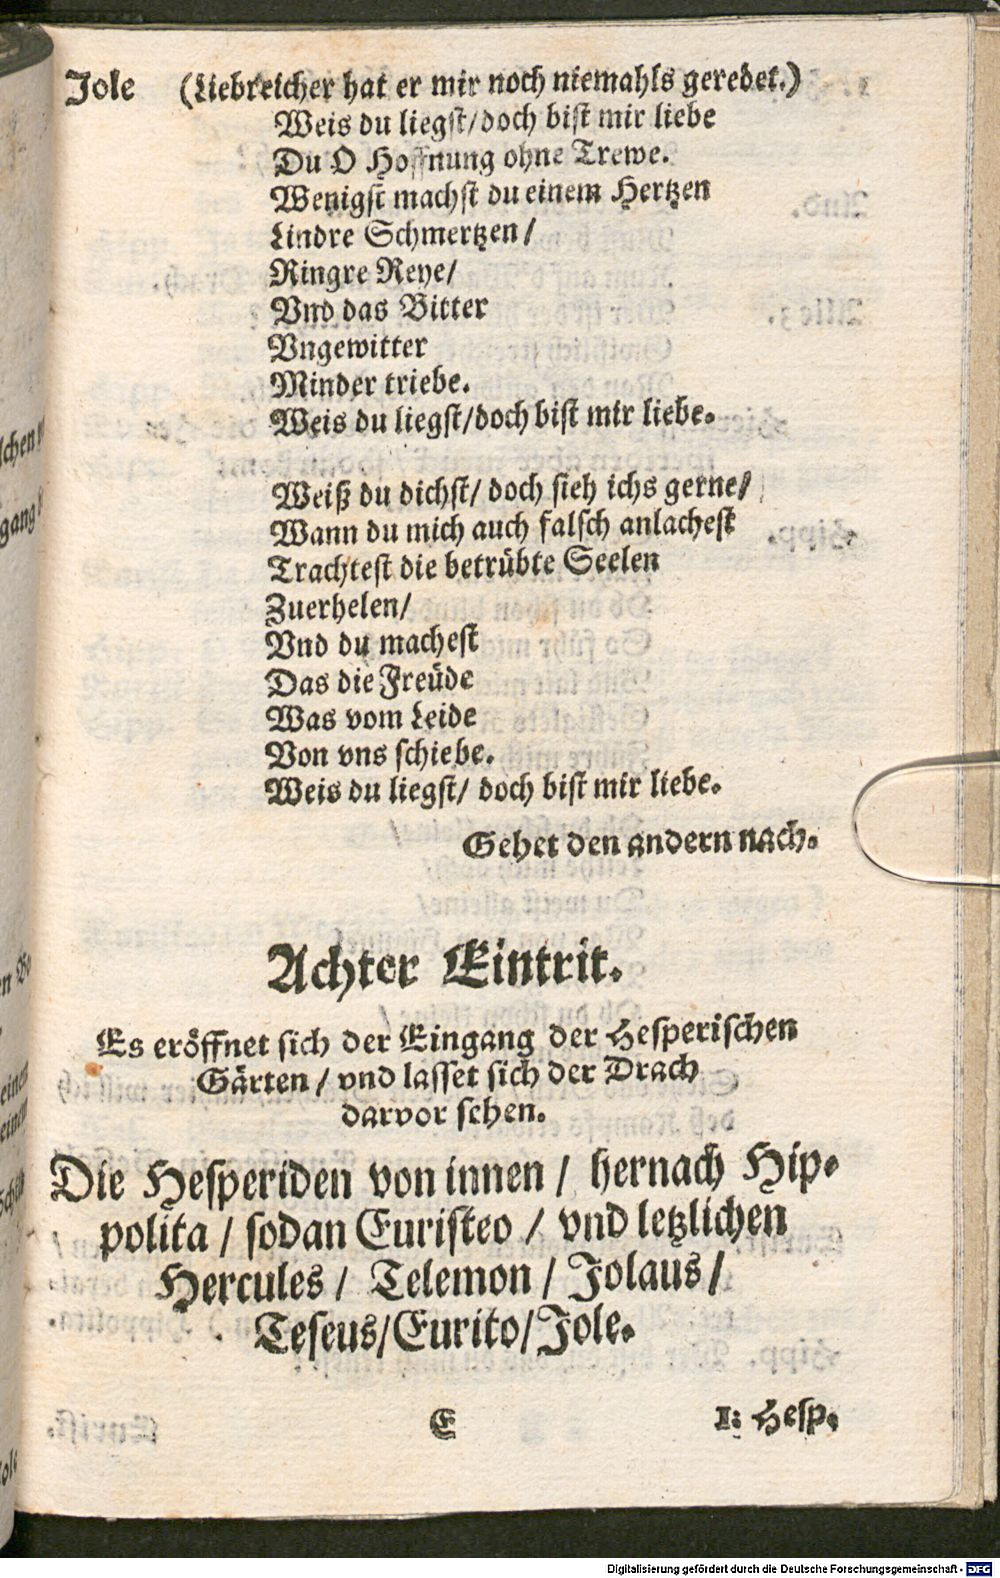 Jole (Liebreicher hat er mir noch niemahls geredet.)
Weis du liegst/doch bist mir liebe
Du O Hoffnung ohne Trewe.
Wenigst machst du einem Hertzen
Lindre Schmertzen/
Ringre Reye/
Vnd das Bitter
Vngewitter
Minder triebe.
Weis du liegst/doch bist mir liebe.
Weiß du dichst/ doch sieh ichs gerne/
Wann du mich auch falsch anlachest
Trachtest die betrübte Seelen
Zuerhelen/
Vnd du machest
Das die Freüde
Was vom Leide
Von vns schiebe.
Weis du liegst/ doch bist mir liebe.
Gehet den andern nach.
Achter Eintrit.
Es eröffnet sich der Eingang der Hesperischen
Gärten / vnd lasset sich der Drach
darvor sehen.
Die Hesperiden von innen / hernach Hip-
polita / sodan Euristeo / vnd letzlichen
Hercules / Telemon / Jolaus /
Teseus/Eurito/Jole.
E 1: Hesp.
Digitalisierung gefördert durch die Deutsche Forschungsgemeinschaft - DFG